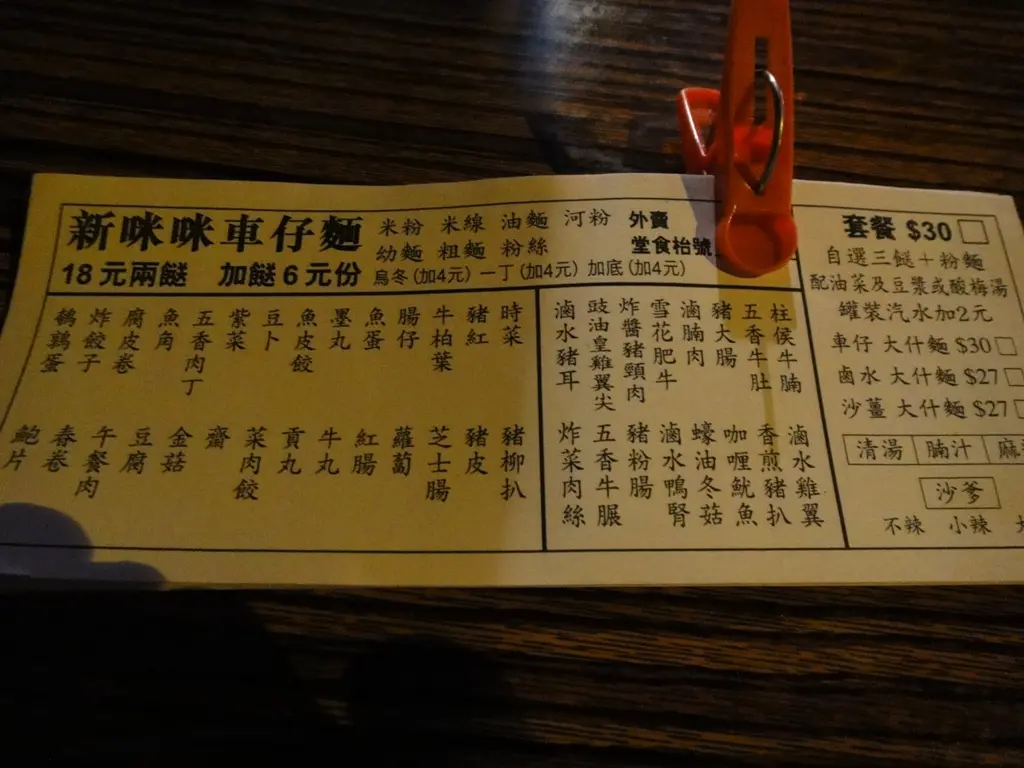 新咪咪車仔麵
18元兩餸 加餸6元份
米粉 米線 油麵 河粉
幼麵 粗麵 粉絲
烏冬(加4元) 一丁(加4元) 加底(加4元)
外賣
堂食枱號
時菜
豬紅
牛柏葉
腸仔
魚蛋
墨丸
魚皮餃
豆卜
紫菜
五香肉丁
魚角
腐皮卷
炸餃子
鵪鶉蛋
豬柳扒
豬皮
芝士腸
蘿蔔
紅腸
牛丸
貢丸
菜肉餃
齋
金菇
豆腐
午餐肉
春卷
鮑片
柱侯牛腩
五香牛肚
豬大腸
滷腩肉
雪花肥牛
炸醬豬頸肉
豉油皇雞翼尖
滷水豬耳
滷水雞翼
香煎豬扒
咖喱魷魚
蠔油冬菇
滷水鴨腎
豬粉腸
五香牛𦟌
炸菜肉絲
套餐 $30
自選三餸＋粉麵
配油菜及豆漿或酸梅湯
罐裝汽水加2元
車仔 大什麵 $30
鹵水 大什麵 $27
沙薑 大什麵 $27
清湯 腩汁 麻
沙爹
不辣 小辣